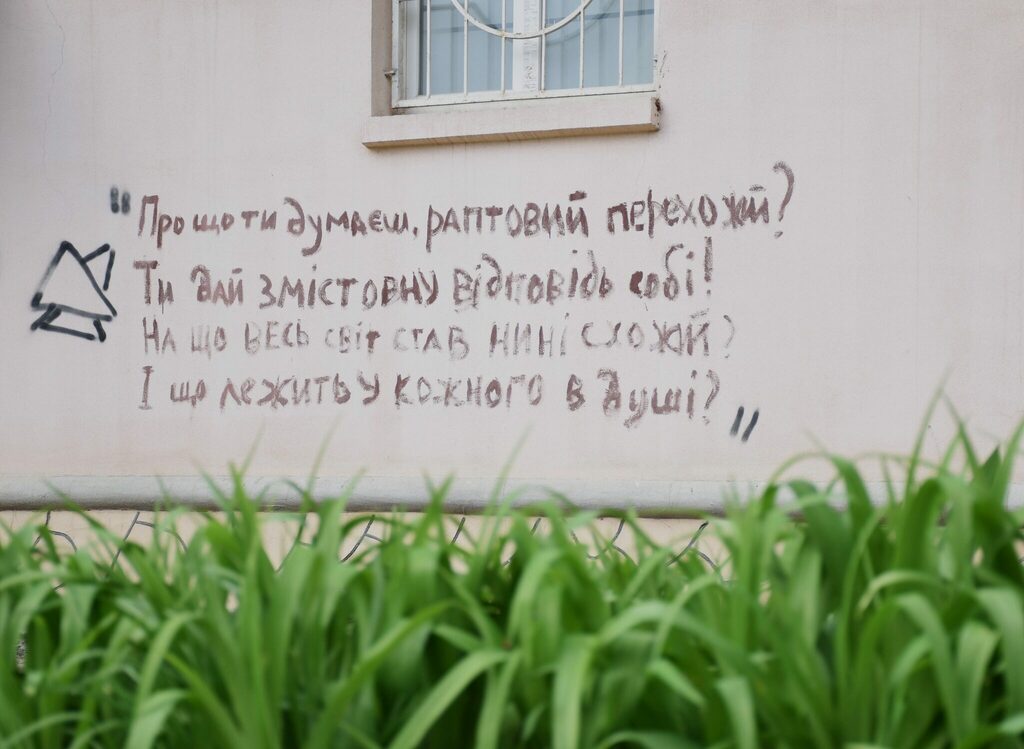 "Про що ти думаєш, раптовий перехожий?
Ти дай змістовну відповідь собі!
На що весь світ став нині схожий?
І що лежить у кожного в душі?"